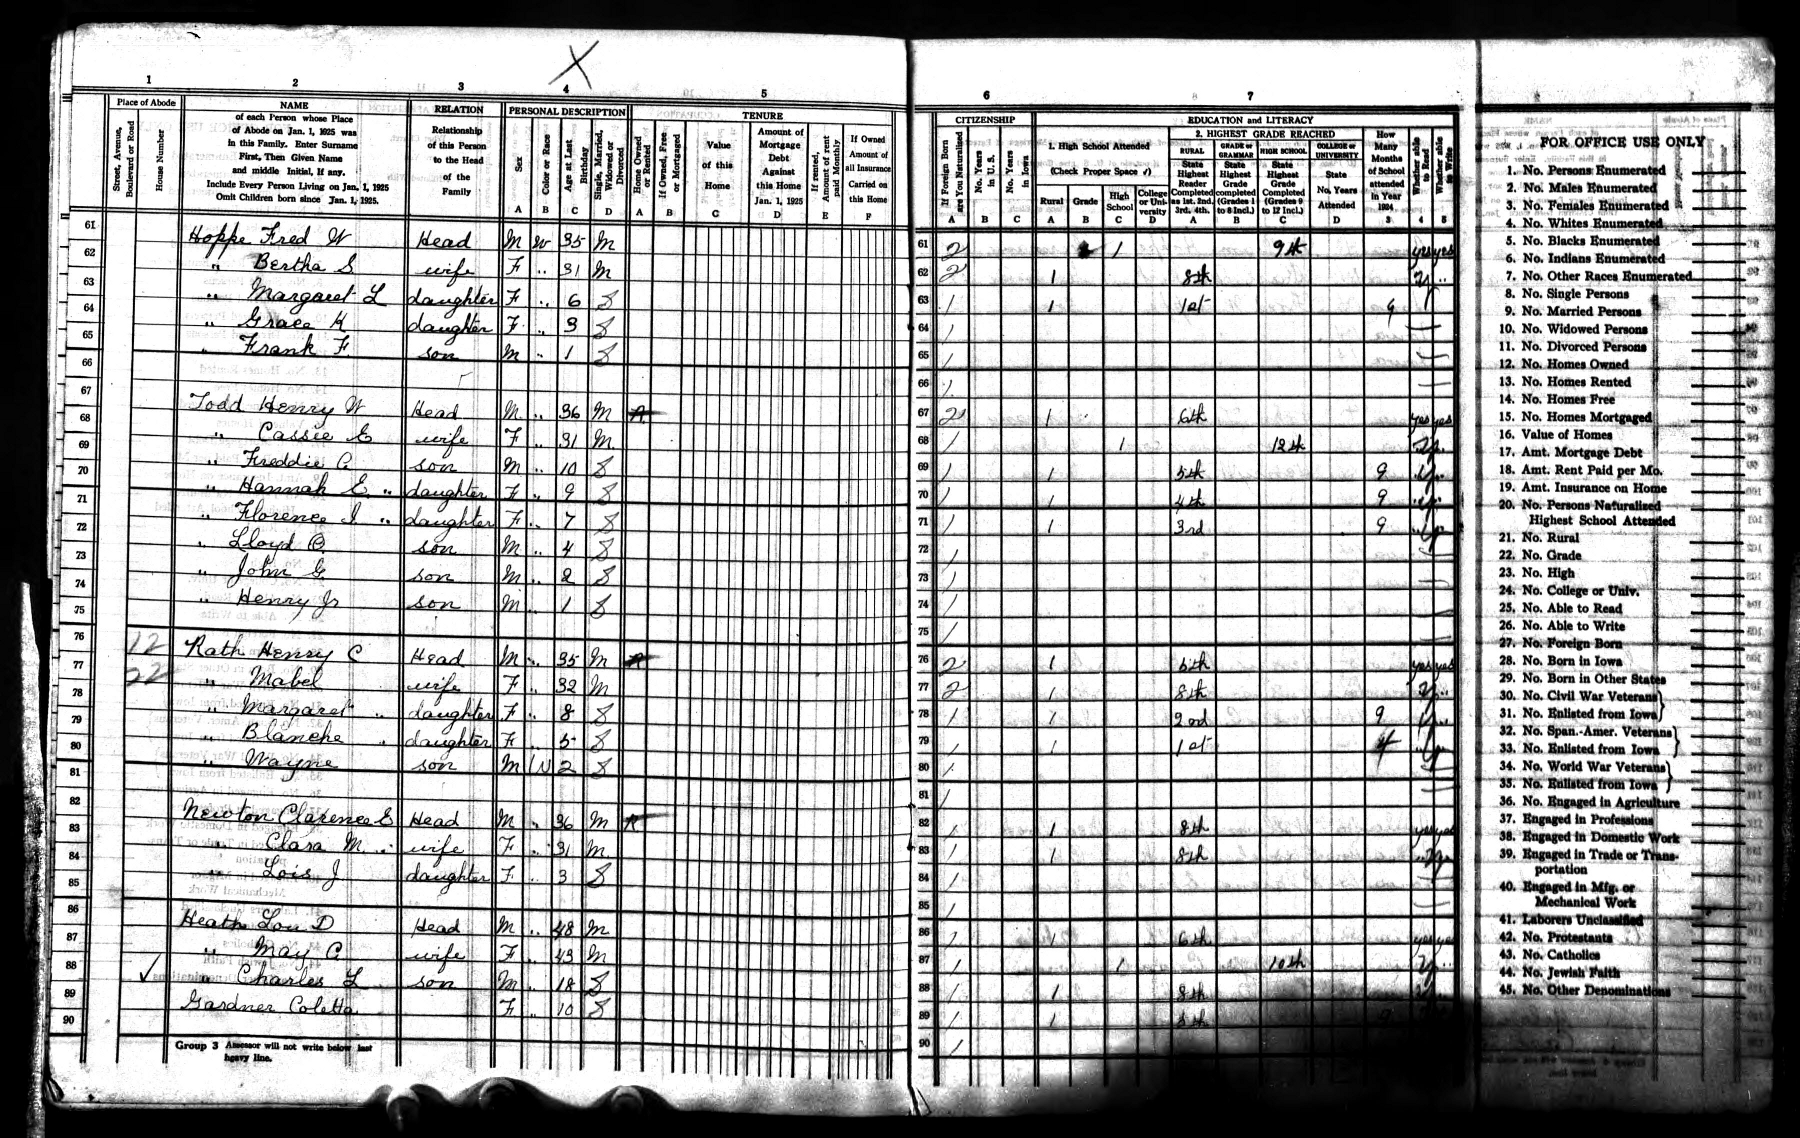 1 2 3 4 5 6 7
Place of Abode
Street, Avenue, Boulevard or Road
House Number
NAME
of each Person whose Place
of Abode on Jan. 1, 1925 was
in this Family. Enter Surname
First, Then Given Name
and middle Initial, if any.
Include Every Person Living on Jan. 1, 1925
Omit Children born since Jan. 1, 1925.
RELATION
Relationship
of this Person
to the Head
of the
Family
PERSONAL DESCRIPTION
Sex
Color or Race
Age at Last Birthday
Single, Married, Widowed or Divorced
A B C D
TENURE
Home Owned or Rented
If Owned, Free or Mortgaged
Value of this Home
Amount of Mortgage Debt Against this Home Jan. 1, 1925
If rented, Amount of rent paid Monthly
If Owned Amount of all Insurance Carried on this Home
A B C D E F
CITIZENSHIP
If Foreign Born are You Naturalized
No. Years in U. S.
No. Years in Iowa
A B C
EDUCATION and LITERACY
1. High School Attended
(Check Proper Space ✓)
Rural Grade High School College or University
A B C D
2. HIGHEST GRADE REACHED
RURAL State Highest Reader Completed as 1st. 2nd. 3rd. 4th.
GRADE or GRAMMAR State Highest Grade Completed (Grades 1 to 8 Incl.)
HIGH SCHOOL State Highest Grade Completed (Grades 9 to 12 Incl.)
COLLEGE or UNIVERSITY State No. Years Attended
A B C D
How Many Months of School attended in Year 1924
3
Whether able to Read
4
Whether able to Write
5
61 Hoppe Fred W Head M W 35 M 61 2 1 9th yes yes
62 " Bertha S wife F " 31 M 62 2 1 8th
63 " Margaret L daughter F " 6 S 63 1 1 1st 9
64 " Grace K daughter F " 3 S 64 1
65 " Frank F. son M " 1 S 65 1
66 66 1
67 Todd Henry W Head M " 36 M R 67 2 1 6th yes yes
68 " Cassie E wife F " 31 M 68 1 1 12th
69 " Freddie C. son M " 10 S 69 1 1 5th 9
70 " Hannah E. " daughter F " 9 S 70 1 1 4th 9
71 " Florence I " daughter F " 7 S 71 1 1 3rd 9
72 " Lloyd O. son M " 4 S 72 1
73 " John G. son M " 2 S 73 1
74 " Henry Jr son M " 1 S 74 1
75 75 1
76 12 Rath Henry C Head M " 35 M R 76 2 1 5th yes yes
77 22 " Mabel wife F " 32 M 77 2 1 8th
78 " Margaret " daughter F " 8 S 78 1 1 2nd 9
79 " Blanche daughter F " 5 S 79 1 1 1st 4
80 " Wayne son M W 2 S 80 1
81 81 1
82 Newton Clarence E Head M " 36 M R 82 1 1 8th yes yes
83 " Clara M. wife F " 31 M 83 1 1 8th
84 " Lois J daughter F " 3 S 84 1
85 85 1
86 Heath Lou D Head M " 48 M 86 1 1 6th yes yes
87 " May C. wife F " 43 M 87 1 1 10th
88 ✓ " Charles L son M " 18 S 88 1 1 8th
89 Gardner Coletta F " 10 S 89 1 1 5th
90 90 1
Group 3 Assessor will not write below last
heavy line.
FOR OFFICE USE ONLY
1. No. Persons Enumerated
2. No. Males Enumerated
3. No. Females Enumerated
4. No. Whites Enumerated
5. No. Blacks Enumerated
6. No. Indians Enumerated
7. No. Other Races Enumerated
8. No. Single Persons
9. No. Married Persons
10. No. Widowed Persons
11. No. Divorced Persons
12. No. Homes Owned
13. No. Homes Rented
14. No. Homes Free
15. No. Homes Mortgaged
16. Value of Homes
17. Amt. Mortgage Debt
18. Amt. Rent Paid per Mo.
19. Amt. Insurance on Home
20. No. Persons Naturalized
Highest School Attended
21. No. Rural
22. No. Grade
23. No. High
24. No. College or Univ.
25. No. Able to Read
26. No. Able to Write
27. No. Foreign Born
28. No. Born in Iowa
29. No. Born in Other States
30. No. Civil War Veterans
31. No. Enlisted from Iowa
32. No. Span.-Amer. Veterans
33. No. Enlisted from Iowa
34. No. World War Veterans
35. No. Enlisted from Iowa
36. No. Engaged in Agriculture
37. Engaged in Professions
38. Engaged in Domestic Work
39. Engaged in Trade or Trans-
portation
40. Engaged in Mfg. or
Mechanical Work
41. Laborers Unclassified
42. No. Protestants
43. No. Catholics
44. No. Jewish Faith
45. No. Other Denominations